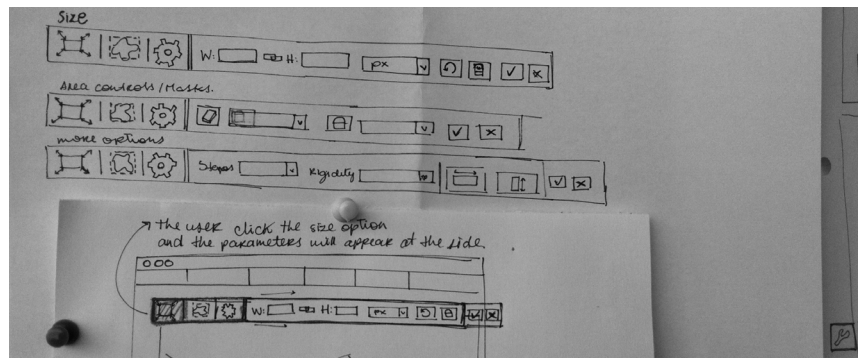 Size
W: H: px
Area controls/Masks.
more options
Steps Rigidity
the user click the size option
and the parameters will appear at the side.
W: H: px